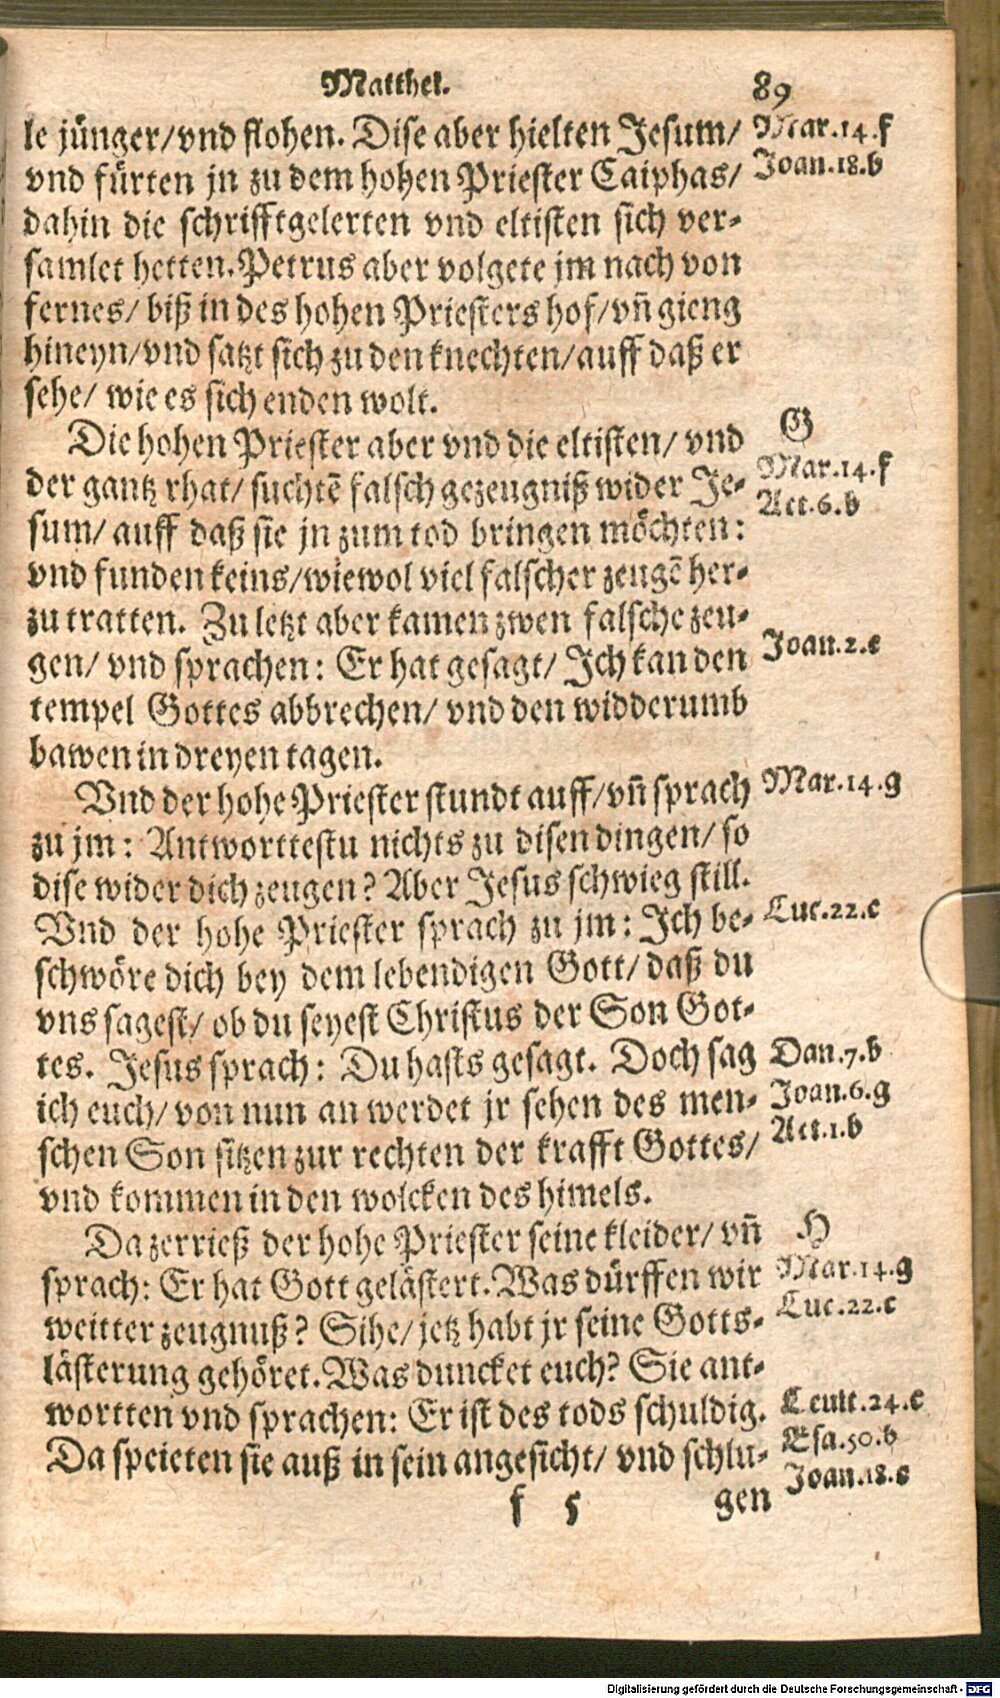 Matthei. 89
le jünger/ vnd flohen. Dise aber hielten Jesum/ Mar.14.f
vnd fürten jn zu dem hohen Priester Caiphas/ Joan.18.b
dahin die schrifftgelerten vnd eltisten sich ver-
samlet hetten. Petrus aber volgete jm nach von
fernes/ biß in des hohen Priesters hof/ vñ gieng
hineyn/ vnd satzt sich zu den knechten/ auff daß er
sehe/ wie es sich enden wolt.
G
Die hohen Priester aber vnd die eltisten/ vnd Mar.14.f
der gantz rhat/ suchtē falsch gezeugniß wider Je- Act.6.b
sum/ auff daß sie jn zum tod bringen möchten:
vnd funden keins/ wiewol viel falscher zeugē her-
zu tratten. Zu letzt aber kamen zwen falsche zeu-
gen/ vnd sprachen: Er hat gesagt/ Ich kan den Joan.2.c
tempel Gottes abbrechen/ vnd den widderumb
bawen in dreyen tagen.
Vnd der hohe Priester stundt auff/ vñ sprach Mar.14.g
zu jm: Antworttestu nichts zu disen dingen/ so
dise wider dich zeugen? Aber Jesus schwieg still.
Vnd der hohe Priester sprach zu jm: Ich be- Luc.22.c
schwöre dich bey dem lebendigen Gott/ daß du
vns sagest/ ob du seyest Christus der Son Got-
tes. Jesus sprach: Du hasts gesagt. Doch sag Dan.7.b
ich euch/ von nun an werdet jr sehen des men- Joan.6.g
schen Son sitzen zur rechten der krafft Gottes/ Act.1.b
vnd kommen in den wolcken des himels.
H
Da zerrieß der hohe Priester seine kleider/ vñ
sprach: Er hat Gott gelästert. Was dürffen wir Mar.14.g
weitter zeugnuß? Sihe/ jetz habt jr seine Gotts- Luc.22.c
lästerung gehöret. Was duncket euch? Sie ant-
wortten vnd sprachen: Er ist des tods schuldig. Leuit.24.c
Da speieten sie auß in sein angesicht/ vnd schlu- Esa.50.b
Joan.18.c
f 5 gen
Digitalisierung gefördert durch die Deutsche Forschungsgemeinschaft - DFG